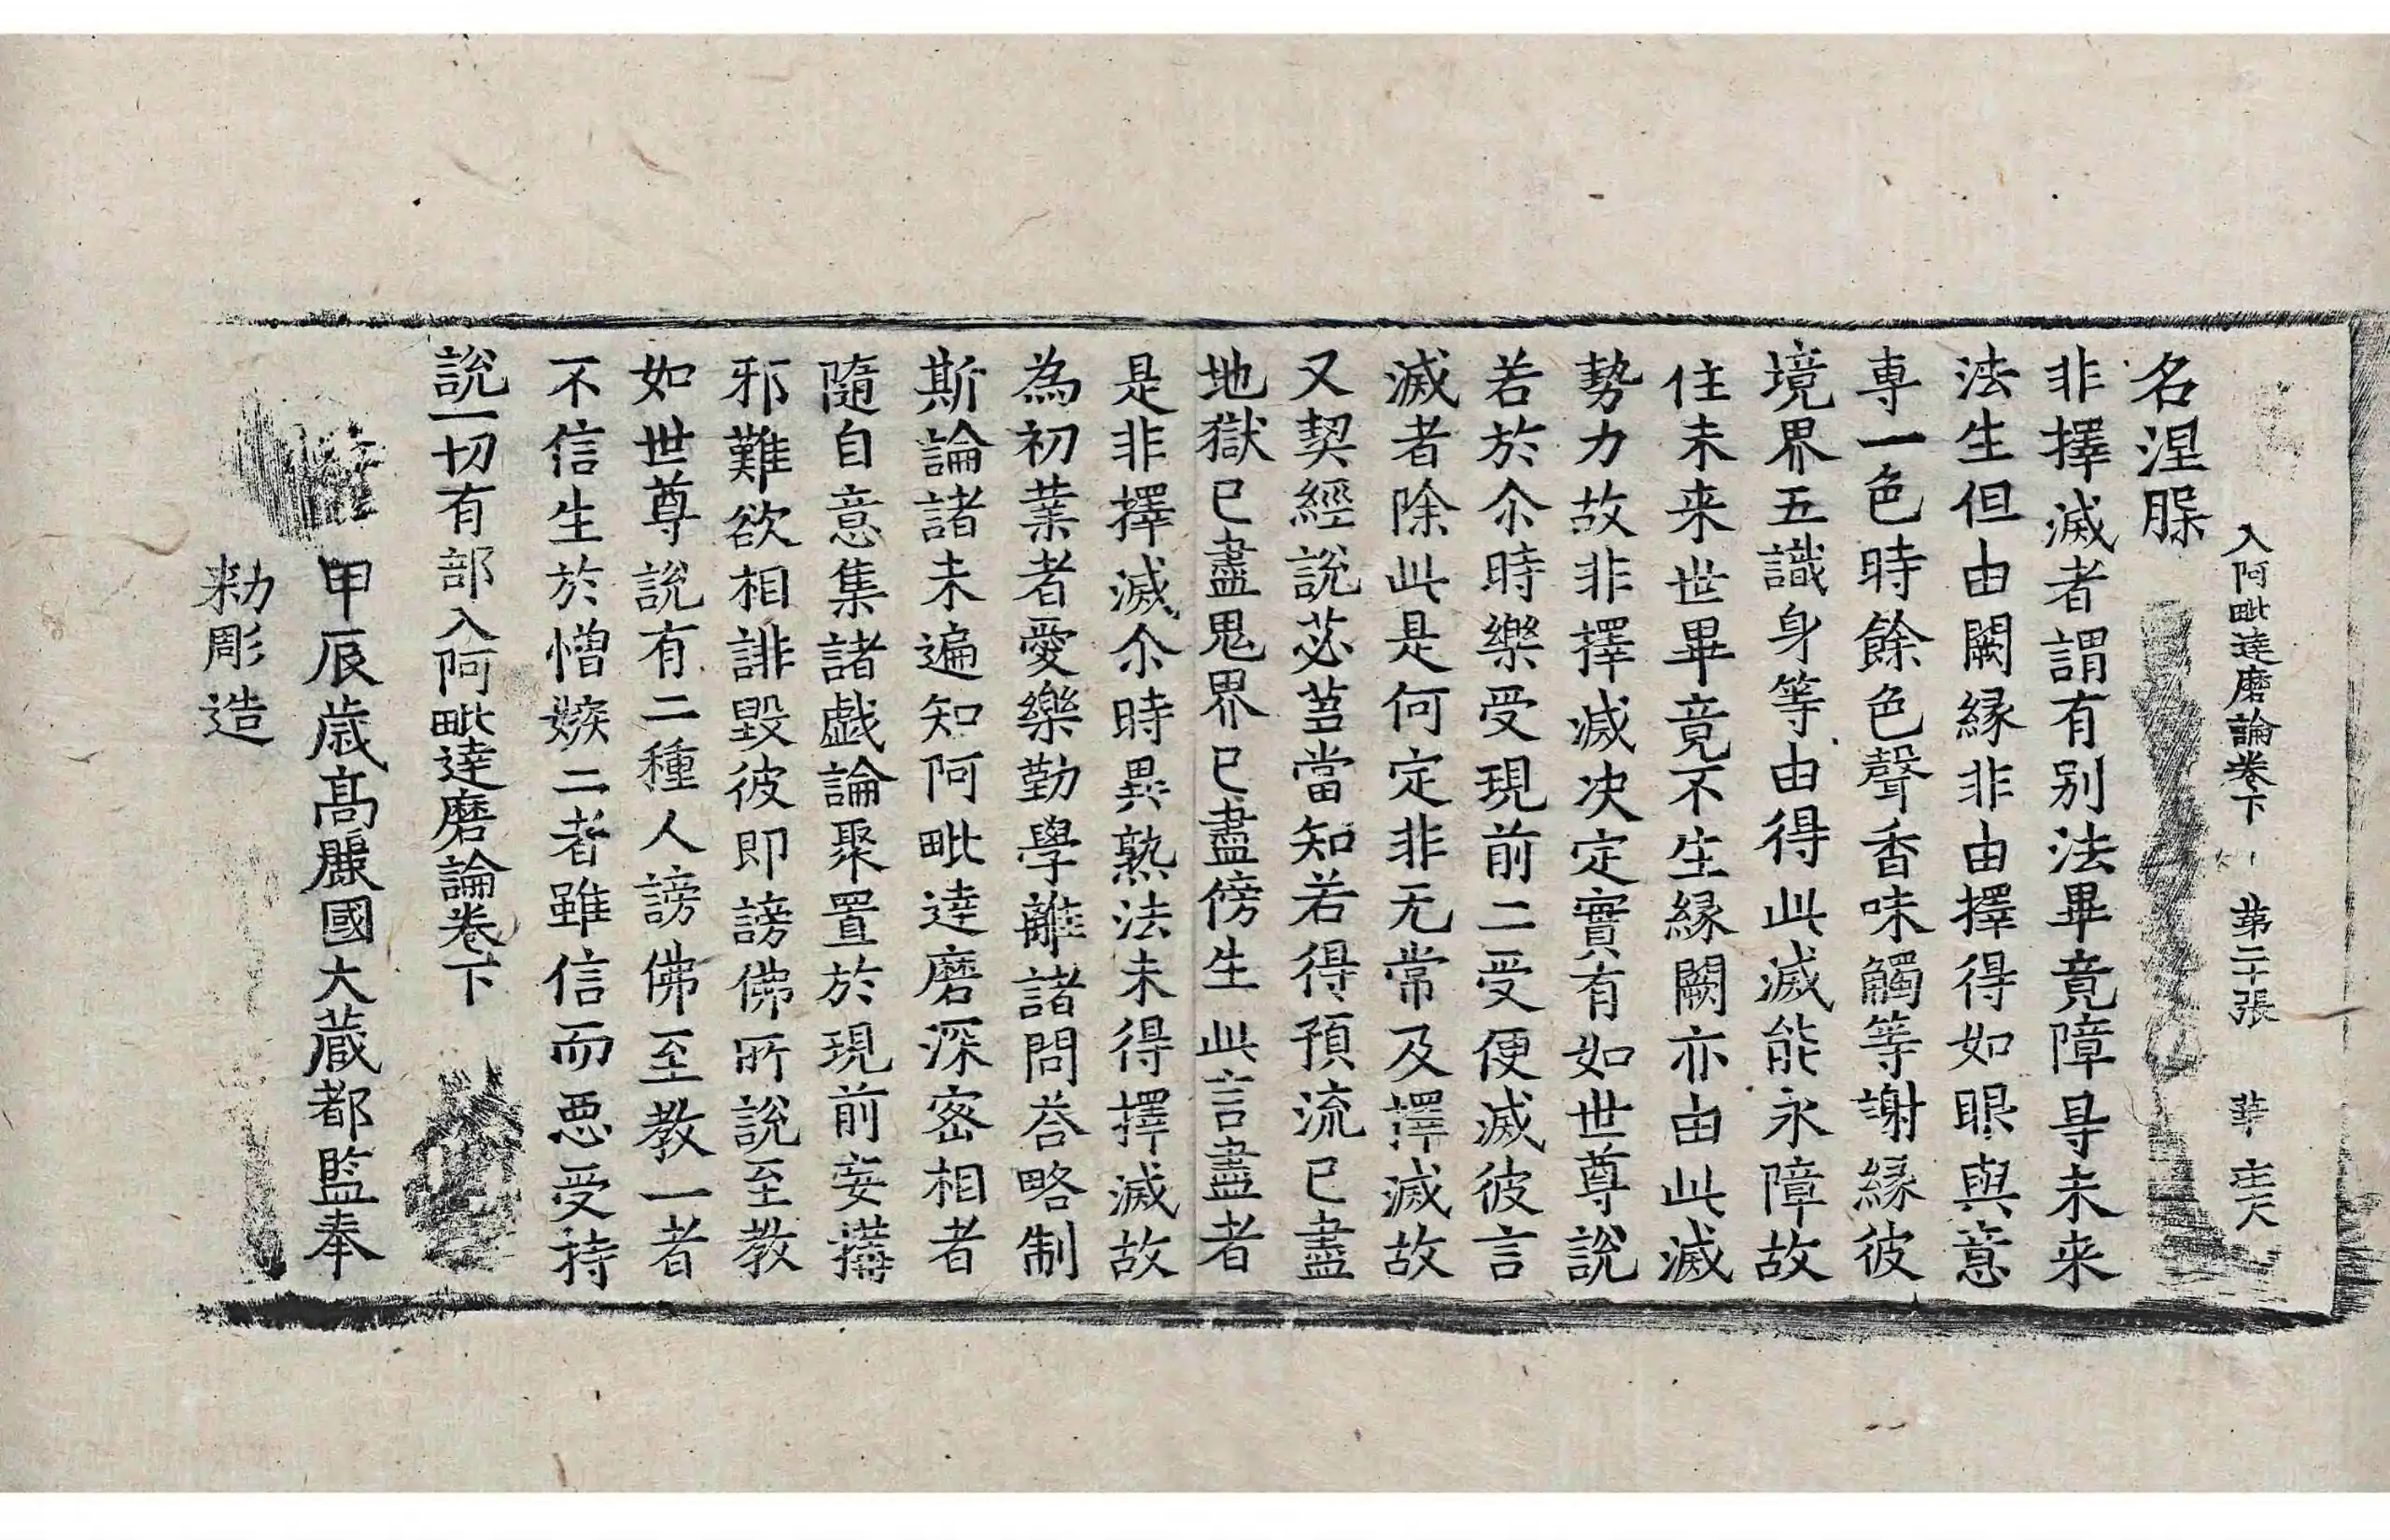 入阿毗達磨論卷下　第二十張　華
名涅槃
非擇滅者謂有別法畢竟障㝵未来
法生但由闕緣非由擇得如眼與意
專一色時餘色聲香味觸等謝緣彼
境界五識身等由得此滅能永障故
住未来世畢竟不生緣闕亦由此滅
勢力故非擇滅決定實有如世尊說
若於尒時樂受現前二受便滅彼言
滅者除此是何定非无常及擇滅故
又契經說苾芻當知若得預流已盡
地獄已盡鬼界已盡傍生此言盡者
是非擇滅尒時異熟法未得擇滅故
為初業者愛樂勤學離諸問荅略制
斯論諸未遍知阿毗達磨深密相者
隨自意集諸戲論聚置於現前妄搆
邪難欲相誹毀彼即謗佛所說至教
如世尊說有二種人謗佛至教一者
不信生於憎嫉二者雖信而惡受持
說一切有部入阿毗達磨論卷下
甲辰歲高麗國大藏都監奉
勑彫造